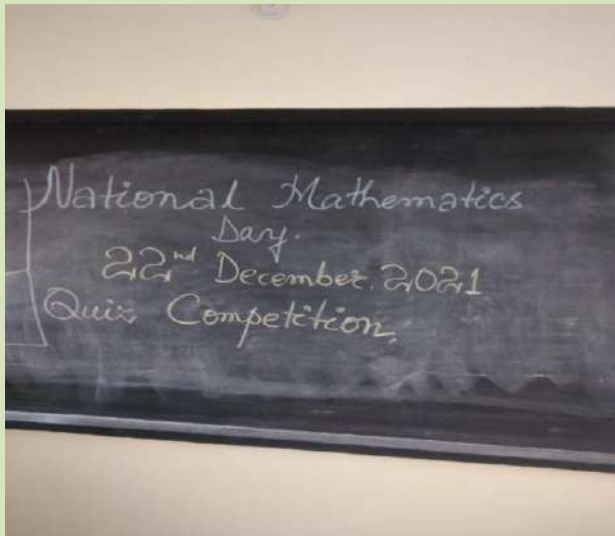 National Mathematics
Day.
22nd December. 2021
Quiz Competition.